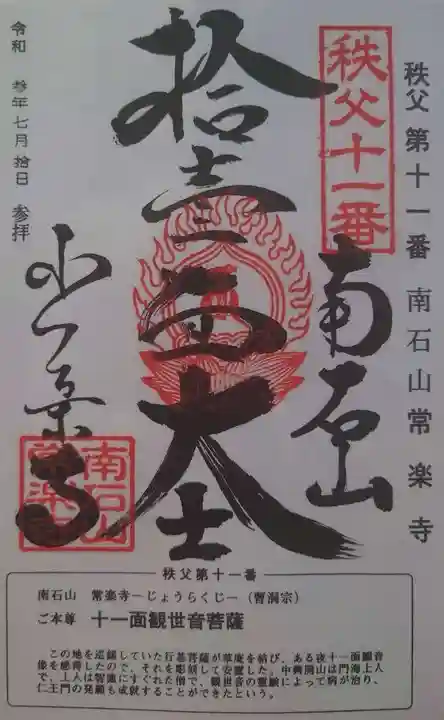 秩父第十一番 南石山常楽寺
秩父十一番
南石山
拾壱面大士
常楽寺
南石山
常楽寺
令和 参年七月拾日 参拝
秩父第十一番
南石山 常楽寺－じょうらくじ－（曹洞宗）
ご本尊 十一面観世音菩薩
この地を巡錫していた行基菩薩が草庵を結び、ある夜十一面観音
像を感得したので、それを彫刻して安置した。中興開山は門海上人
で、上人は智識にすぐれた僧で、観世音の霊験によって病が治り、
仁王門の発願も成就することができたという。